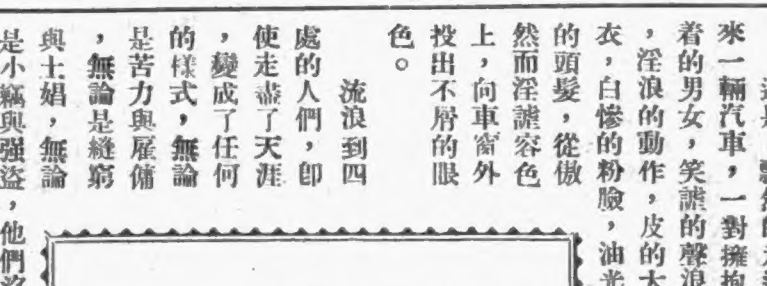 來一輛汽車，一對擁抱
着的男女，笑謔的聲浪
，淫浪的動作，皮的大
衣，白慘的粉臉，油光
的頭髮，從傲
然而淫謔容色
上，向車窗外
投出不屑的眼
色。
流浪到四
處的人們，卽
使走盡了天涯
，變成了任何
的樣式，無論
是苦力與雇傭
，無論是縫窮
與土娼，無論
是小竊與强盜，他們